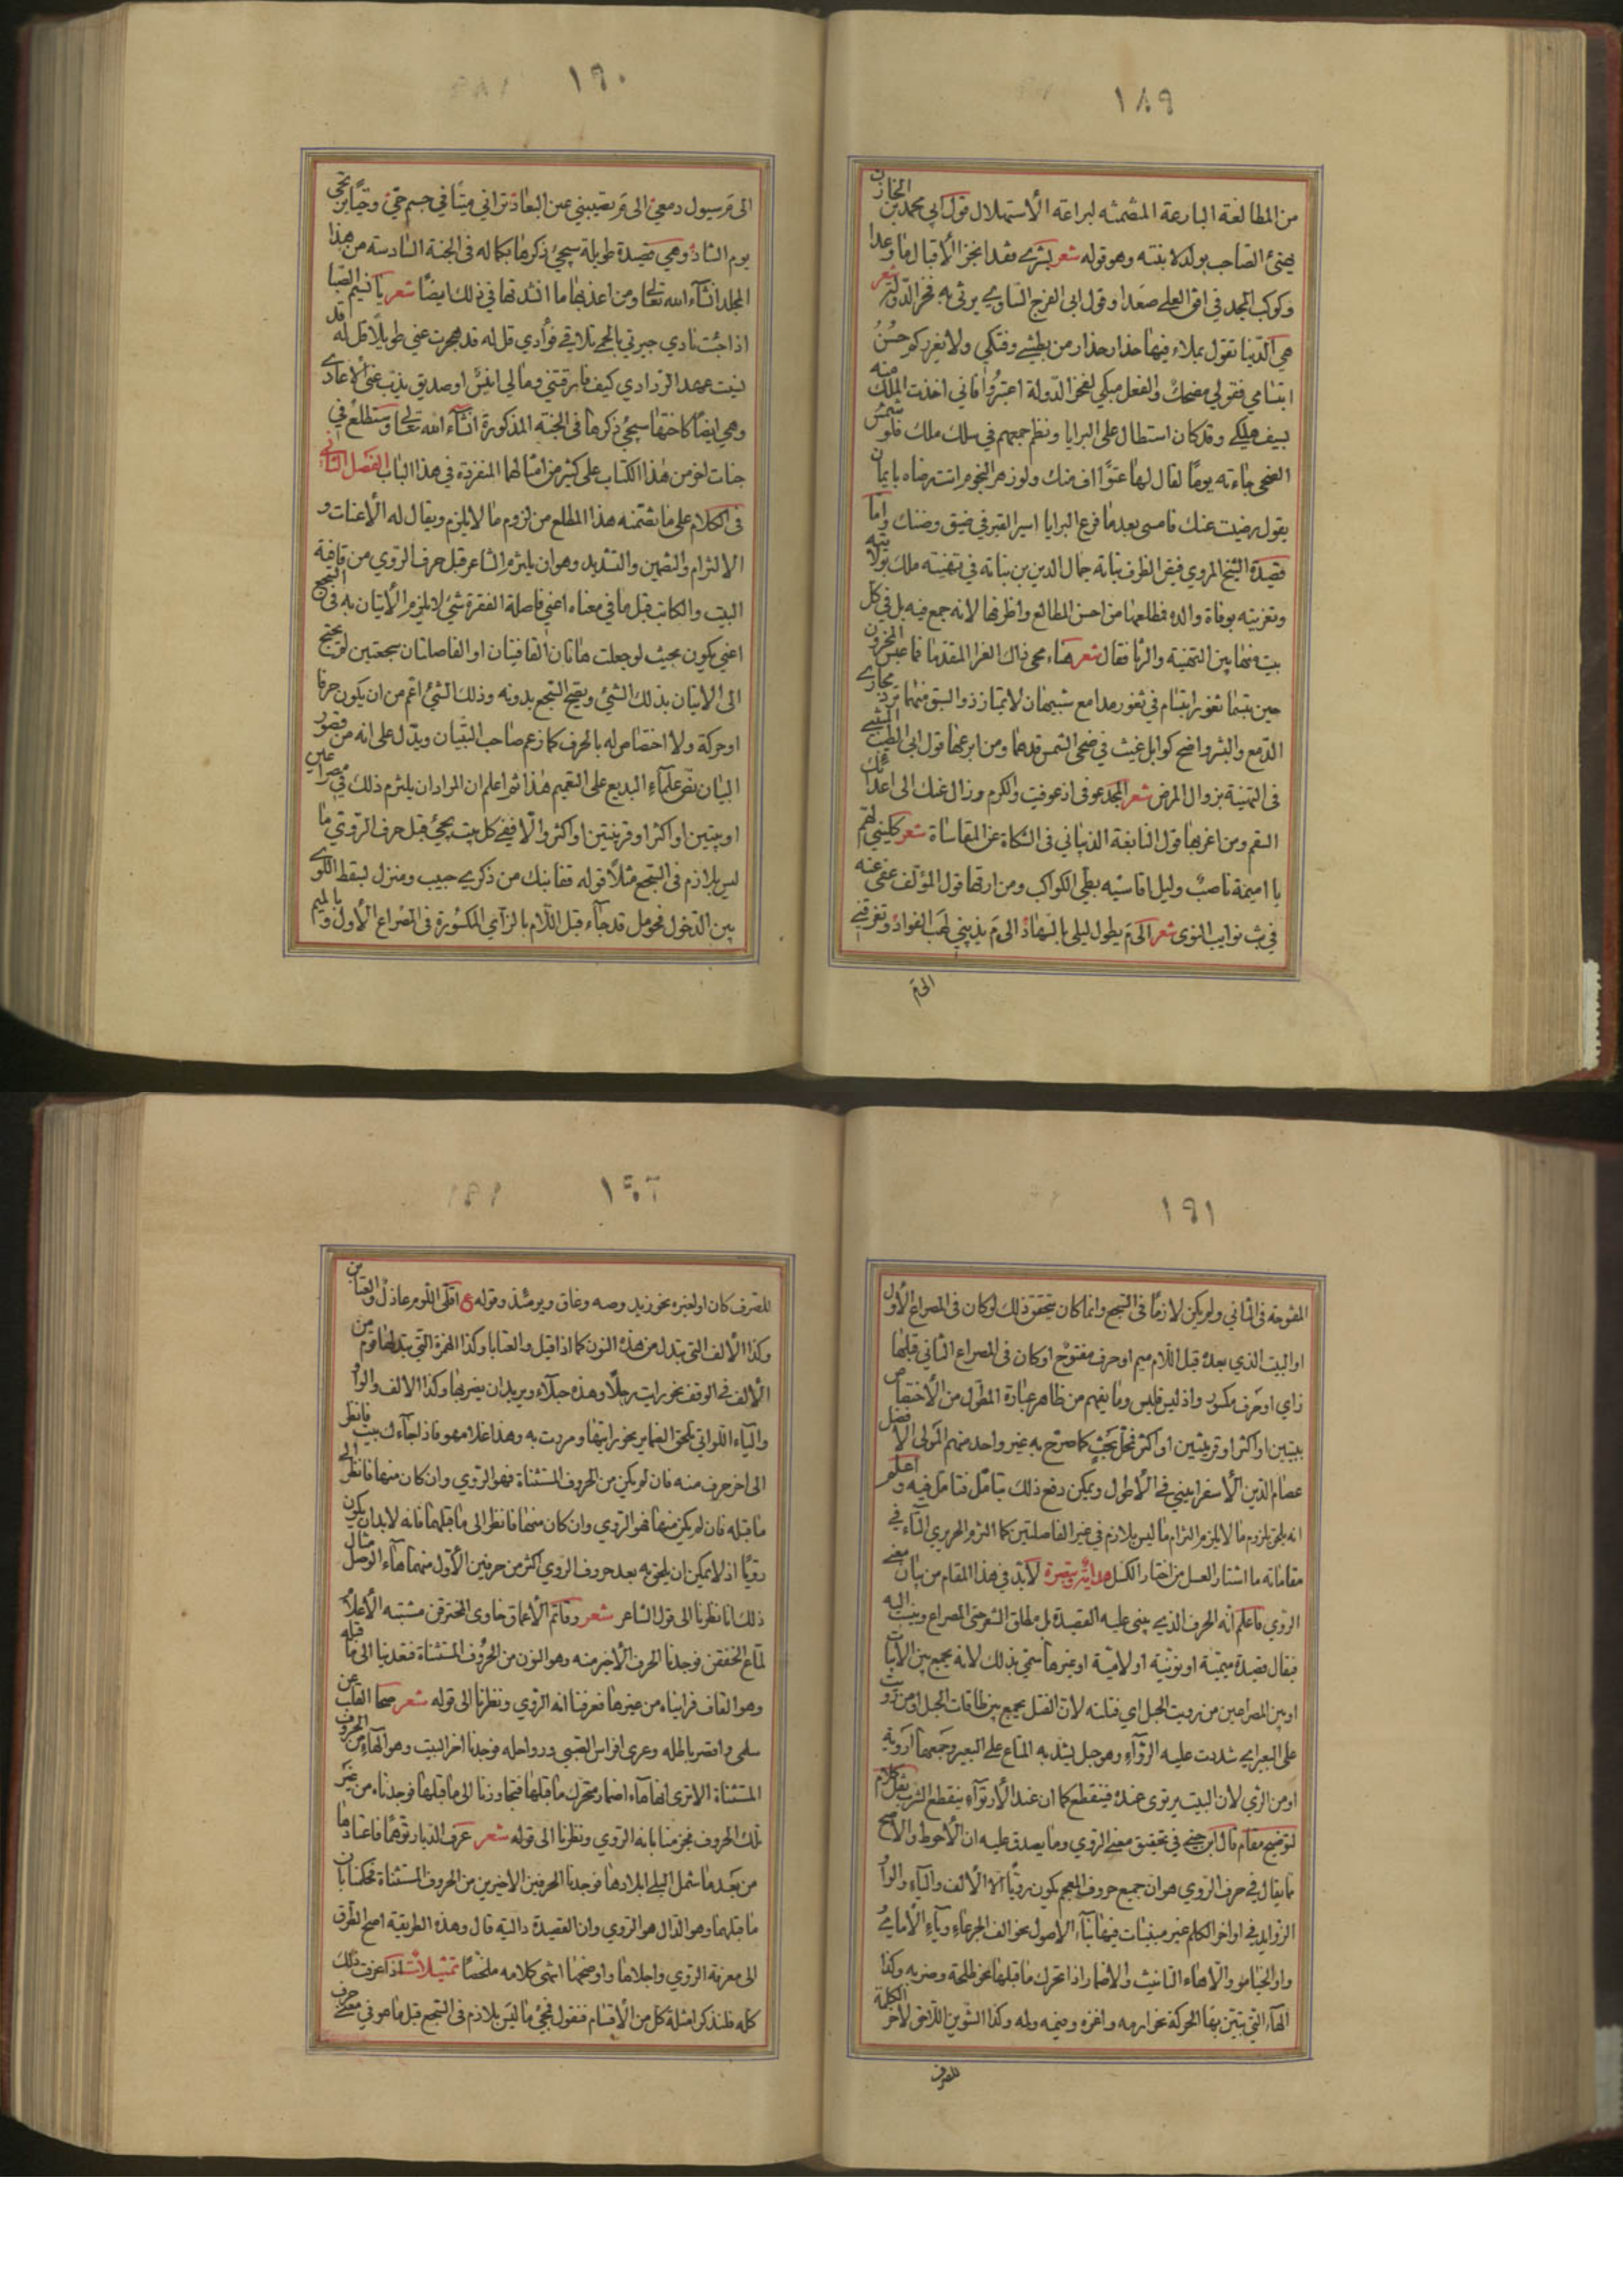 ١٨٩
من المطالعة البارعة المتضمنه لبراعة الأستهلال قول ابي محمد بن الخازن
يهنئ الصاحب بولد لابنته وهو قوله شعر بشرى فقد انجز الأقبال ما وعدا
وكوكب المجد في افق العلى صعدا وقول ابي الفرج الساوي يرثي به فخر الدولة شعر
هي الدنيا تقول بملاء فيها حذار حذار من بطشي وفتكي ولا يغرركم حسن
ابتسامي فقولي مضحك والفعل مبكي لفخر الدولة اعتبروا فاني اخذت الملك منه
بسيف هلك وقد كان استطال على البرايا ونظم جمعهم في سلك ملك فلو شمس
الضحى جاءته يوما لقال لها عتوا اف منك ولو زهر النجوم اتت رضاه بايمان
يقول رضيت عنك فامسى بعد ما فرع البرايا اسير القبر في ضيق وضنك واما
قصيدة الشيخ المروي فيقر الظرف نباته جمال الدين بن نباتة في تهنيته ملك بولايته
وتعزيته بوفاة والده فطلعها من احسن المطالع واظرفها لانه جمع فيه بل في كل
بيت منها بين التهنية والرثا فقال شعر هناء محى ذاك العزا المقدما فما عبس المحزون
حين تبسما ثغور ابتسام في ثغور مدامع شبيهان لا يمتاز ذو السبق منهما ترد مجاري
الدمع والبشر واضح كوابل غيث في ضحى الشمس قد هما ومن ابرعها قول ابي الطيب المتنبي
في التهنية بزوال المرض شعر المجد عوفي اذ عوفيت والكرم وزال عنك الى اعدائك
السقم ومن اغربها قول النابغة الذبياني في الشكاة عن المقاساة شعر كليني لهم
يا اميمة ناصب وليل اقاسيه بطي الكواكب ومن ارقها قول المؤلف عفي عنه
في بث نوايب النوى شعر الى م يطول ليلى بالسهاد الى م يذيبني لهب الفواد وتغرقني
الى م
١٩٠
الى م سيول دمعي الى م تصيبني عين البعاد تراني ميتا في جسم حي وحيا بن نحى
يوم التناد وهي قصيدة طويلة سيجئ ذكرها بكماله في الجنة السادسة من هذا
المجلد انشآء الله تعالى ومن اعذبها ما انشدتها في ذلك ايضا شعر يا نسيم الصبا
اذا جئت نادي جيرتي بالحمى تلاقي فوأدي قل له قد هجرت عني طويلا قل له قد
نسيت عهد الودادي كيف فارقتني وما لي انيس او صديق يذب عني الأعادي
وهي ايضا كاختها سيجئ ذكرها في الجنة المذكورة انشآء الله تعالى وستطلع في
جنات اخر من هذا الكتاب على كثير من امثالها المنفردة في هذا الباب الفصل الثاني
في الكلام على ما يتضمنه هذا المطلع من لزوم ما لا يلزم ويقال له الأعنات و
الالتزام والتضمين والتشديد وهو ان يلتزم الشاعر قبل حرف الروي من قافية
البيت والكاتب قبل ما في معناه اعني فاصلة الفقرة شئ لا يلزم الأتيان به في السجع
اعني يكون بحيث لو جعلت هاتان القافيتان او الفاصلتان سجعتين لم يحتج
الى الاتيان بذلك الشئ ويصح السجع بدونه وذلك الشئ اعم من ان يكون حرفا
او حركة ولا اختصاص له بالحرف كما زعم صاحب التبيان ويدل على انه من قصور
البيان نص علمآء البديع على التعميم هذا ثم اعلم ان المراد ان يلتزم ذلك في مصراعين
او بيتين او اكثر او قرينتين او اكثر والا ففي كل بيت يجئ قبل حرف الروي ما
ليس بلازم في السجع مثلا قوله قفا نبك من ذكرى حبيب ومنزل بسقط اللوى
بين الدخول فحومل قد جآء قبل اللام بالزآي المكسورة في المصراع الأول وبالميم
١٩١
المفتوحة في الثاني ولم يكن لازما في السجع وانما كان يتحقق ذلك لو كان في المصراع الأول
او البيت الذي بعده قبل اللام ميم او حرف مفتوح او كان في المصراع الثاني قبلها
زاي او حرف مكسور واذ ليس فليس وما يفهم من ظاهر عبارة المطول من الأختصاص
ببيتين او اكثر او قرينتين او اكثر فمحل بحث كما صرح به غير واحد منهم المولى الأفضل
عصام الدين الأسفرايني في الأطول ويمكن دفع ذلك بتامل فتامل فيه واعلم
انه يلحق بلزوم ما لا يلزم التزام ما ليس بلازم في غير الفاصلتين كما التزم الحريري التآء في
مقاماته ما اشتار العسل من اختار الكسل هداية وتبصرة لا بد في هذا المقام من بيان معنى
الروي فاعلم انه الحرف الذي يبنى عليه القصيدة بل مطلق الشعر حتى المصراع وينسب اليه
فيقال قصيدة ميمية او نونية او لامية او غيرها سمي بذلك لانه يجمع بين الابيات
او بين المصراعين من رويت الحبل اي فتلته لان الفتل يجمع بين طاقات الحبل او من رويت
على البعير اي شددت عليه الروآء وهو حبل يشد به المتاع على البعير وجمعها اروية
او من الري لان البيت يرتوى عنده فينقطع كما ان عند الأرتوآء ينقطع الشرب نقل كلام
لتوضيح مقام قال ابن جني في تحقيق معنى الروي وما يصدق عليه ان الأحوط والأصح
ما يقال في حرف الروي هو ان جميع حروف المعجم يكون رويا الا الألف والياء والواو
الزوايد في اواخر الكلم غير مبنيات فيها بنآء الاصول نحو الف الجرعاء وياء الأيامي
واو الخيامو والا هاء التانيث والاضمار اذا تحرك ما قبلها نحو طلحة وضربه وكذا
الهآء التي تبين بها الحركة نحو ارمه واغزه وفيمه ولمه وكذا التنوين اللاحق لآخر الكلمة
للصرف
١٩٢
للصرف كان او لغيره نحو زيد وصه وغاق ويومئذ وقوله ع اقلى اللوم عاذل والعتابن
وكذا الألف التي تبدل من هذه النون كما اذا قيل والعتابا وكذا الهمزة التي تبدلها قوم من
الألف في الوقف نحو رايت رجلأ وهذه حبلأ ويريد ان يضربها وكذا الالف والواو
والياء اللواتي تلحق الضماير نحو رايتها ومررت به وهذا غلامهو فاذا جآءك بيت فانظر
الى اخر حرف منه فان لم يكن من الحروف المستثناة فهو الروي وان كان منها فانظر الى
ما قبله فان لم يكن منها فهو الروي وان كان منها فانظر الى ما قبلهما فانه لا بد ان يكون
رويا اذ لا يمكن ان يلحق به بعد حروف الروي اكثر من حرفين الأول منهما هآء الوصل مثال
ذلك انا نظرنا الى قول الشاعر شعر وقاتم الأعماق خاوى المخترقن مشتبه الأعلام
لماع الخفقن فوجدنا الحرف الأخير منه وهو النون من الحروف المستثناة فتعدينا الى ما قبله
وهو القاف فرايناه من غيرها فعرفنا انه الروي ونظرنا الى قوله شعر صحا القلب عن
سلمى واقصر باطله وعرى افراس الصبى ورواحله فوجدنا اخر البيت وهو الهآء من الحروف
المستثناة الا ترى انها هآء اضمار متحرك ما قبلها فتجاوزنا الى ما قبلها فوجدناه من غير
تلك الحروف فجزمنا بانه الروي ونظرنا الى قوله شعر عرف الديار توهما فاعتادها
من بعد ما شمل البلى ابلادها فوجدنا الحرفين الاخيرين من الحروف المستثناة فحكمنا بان
ما قبلهما وهو الدال هو الروي وان القصيدة دالية قال وهذه الطريقة اصح الطرق
الى معرفة الروي واجلاها واوضحها انتهى كلامه ملخصا تمثيلات اذا عرفت ذلك
كله فلنذكر امثلة كل من الأقسام فنقول مجئ ما ليس بلازم في السجع قبل ما هو في معنى حرف